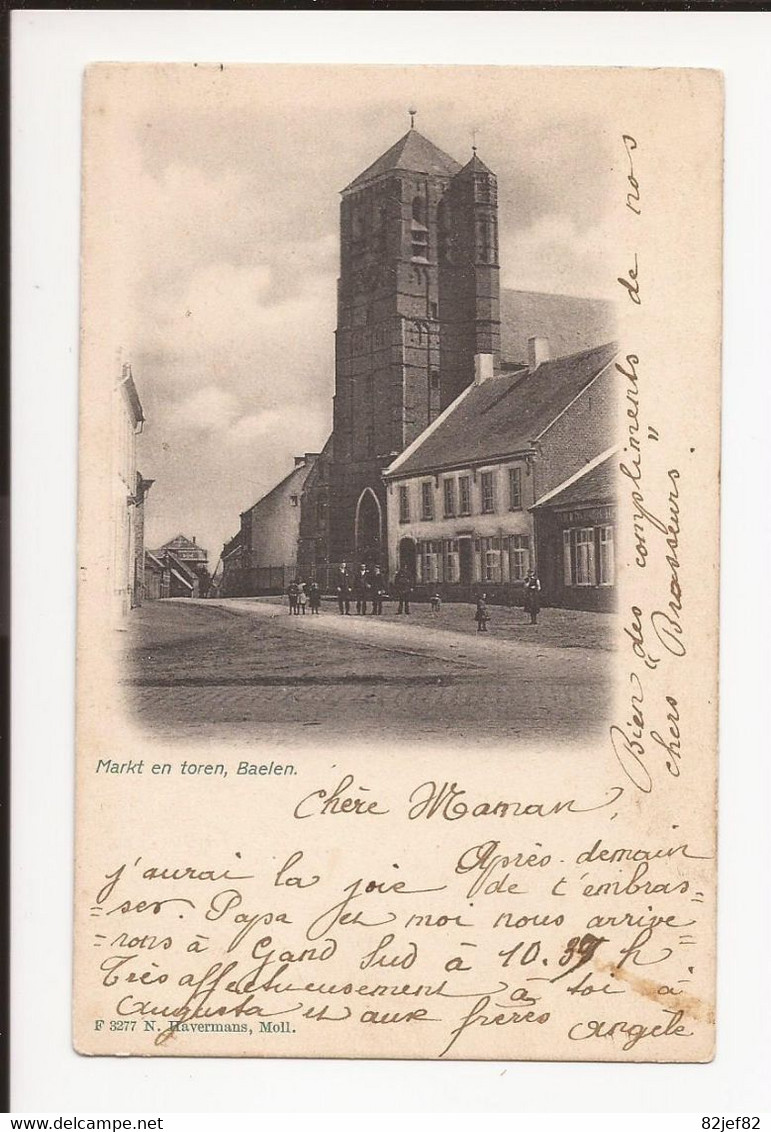 Markt en toren, Baelen.
Chère Maman,
Après-demain
j'aurai la joie de t'embras=
=ser. Papa et moi nous arrive
=rons à Gand Sud à 10.37 h=
Très affectueusement à toi à
Augusta et aux frères Angèle
F 3277 N. Havermans, Moll.
Bien "des compliments" de nos
chers Brasseurs.
82jef82